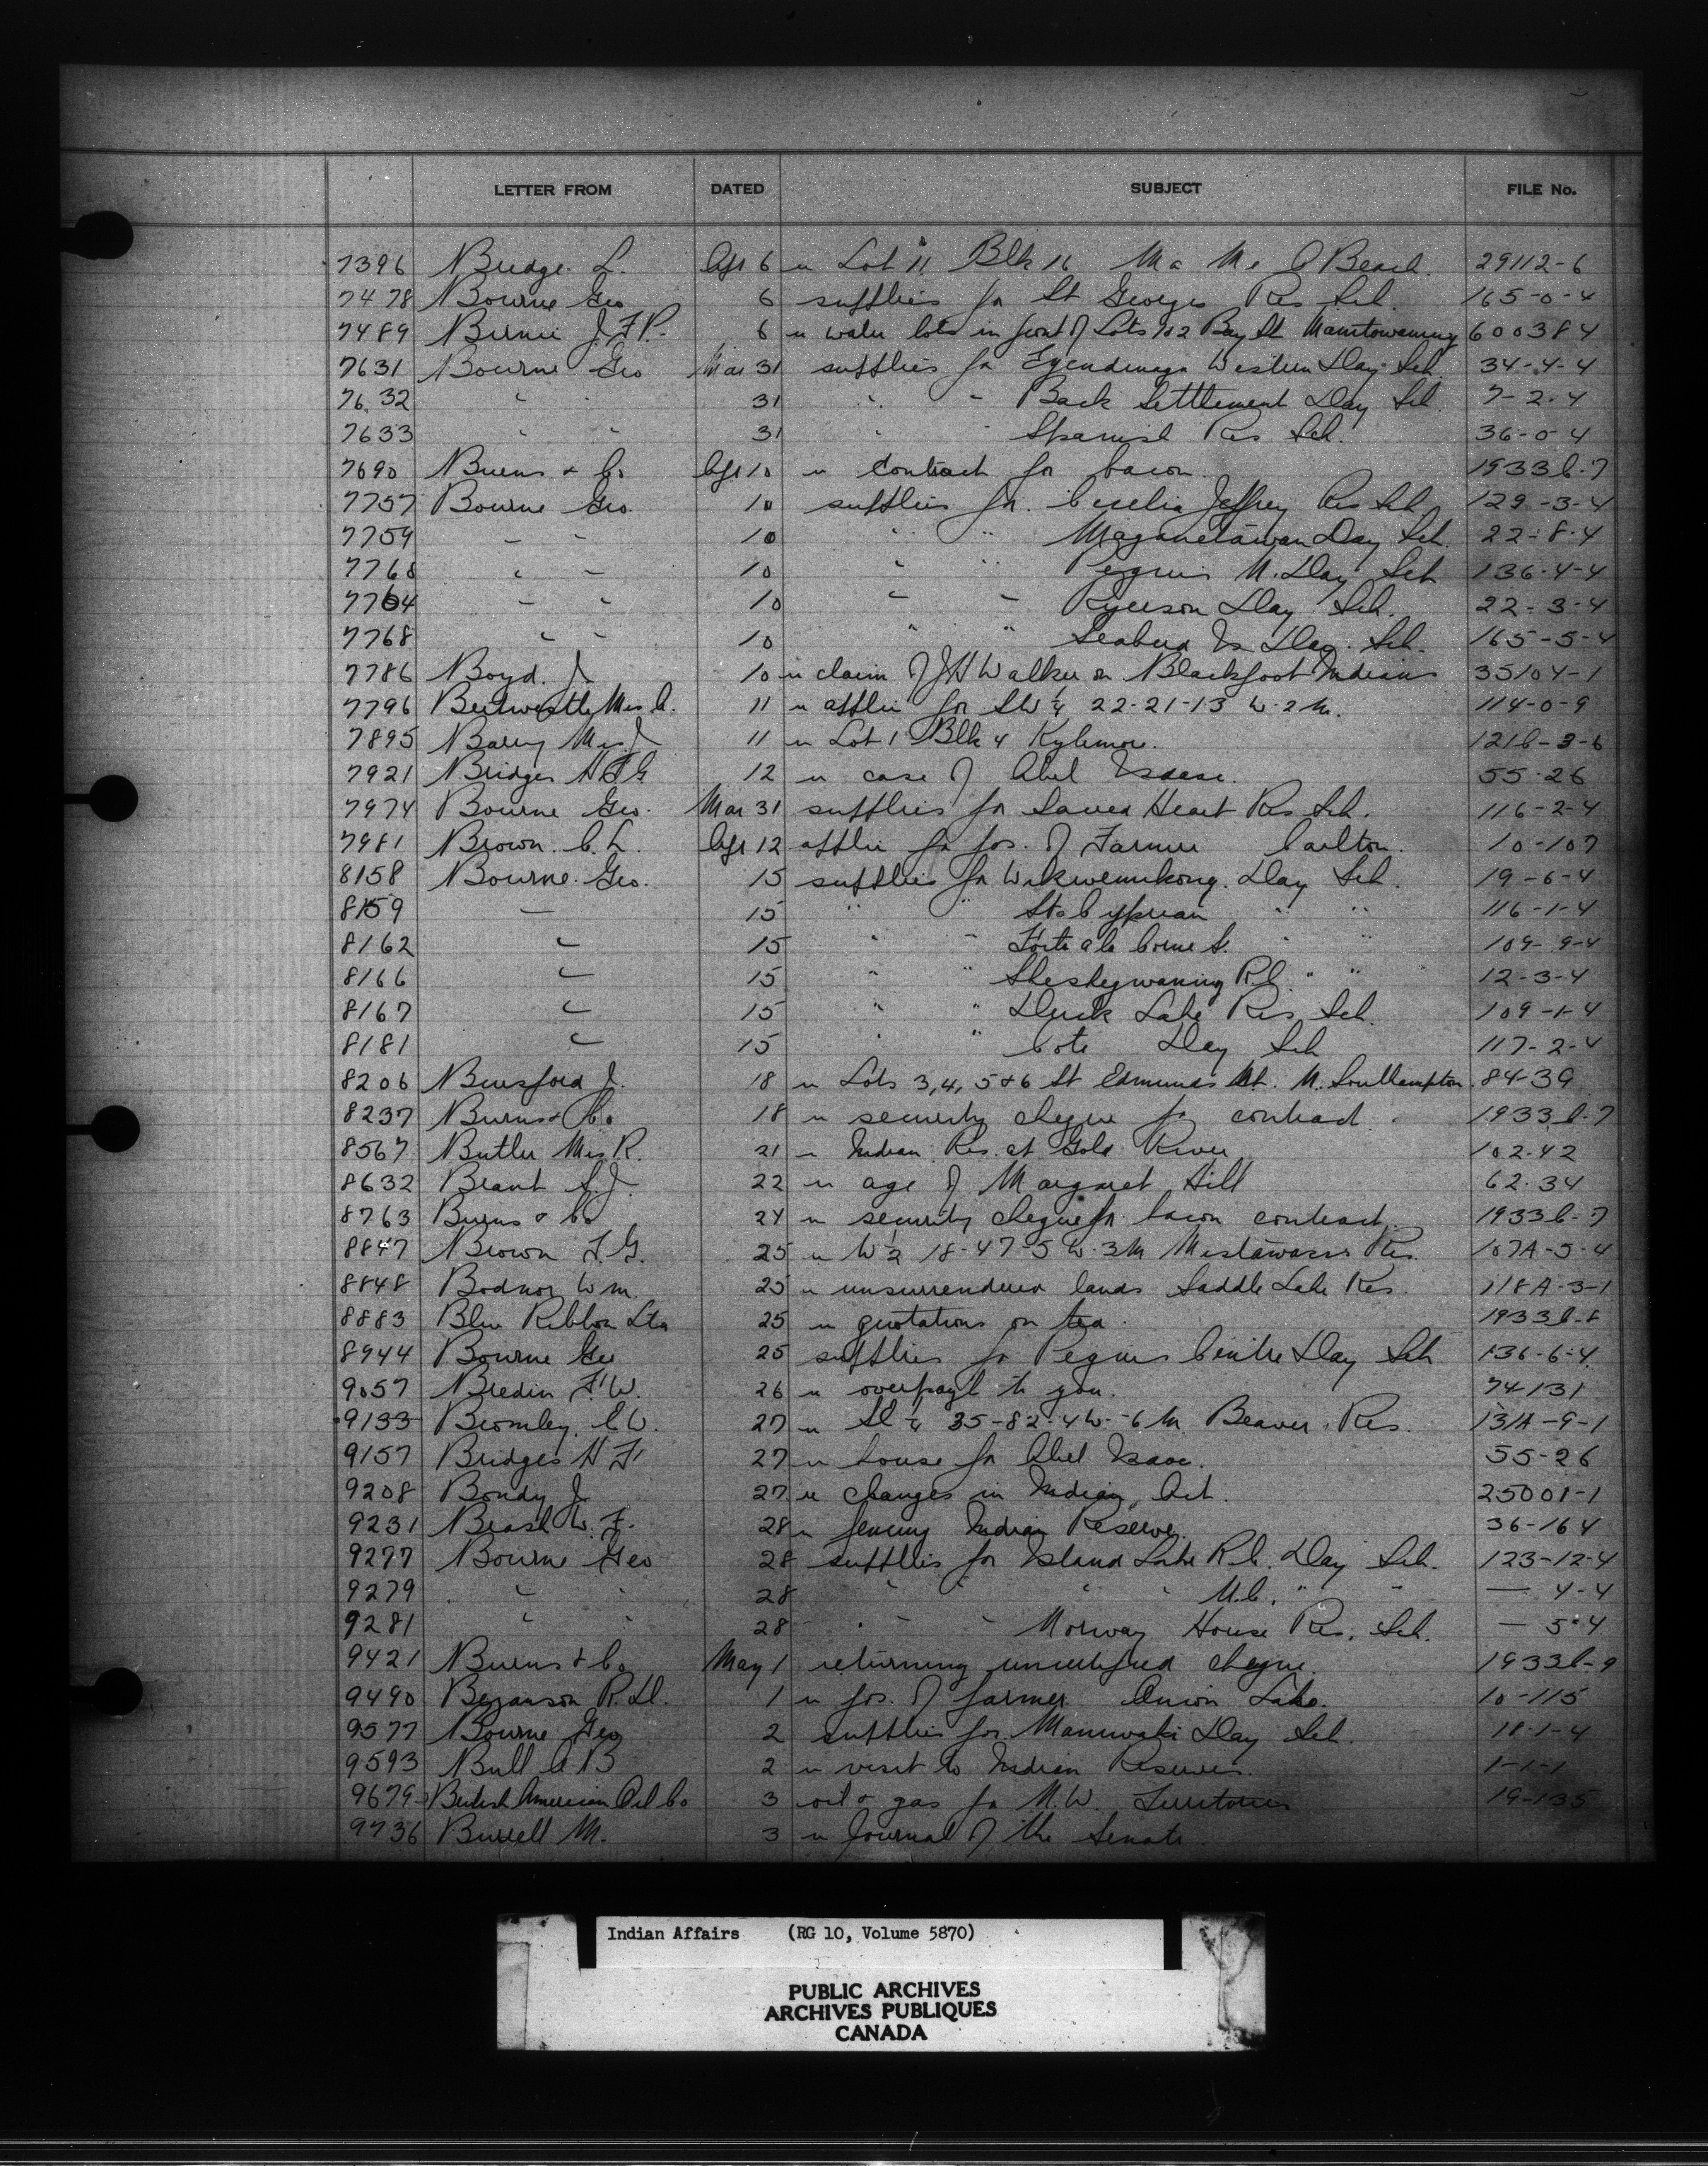 LETTER FROM DATED SUBJECT FILE No.
7396 Bridge L. Apr 6 re Lot 11 Blk 16 Ma Me O Beach. 29112-6
7478 Bourne Geo 6 supplies for St Georges Res Sch. 165-0-4
7489 Birnie J.F.P. 6 re water lots in front of Lots 1 & 2 Bay St Manitowaning 600384
7631 Bourne Geo Mar 31 supplies for Tyendinaga Western Day Sch. 34-4-4
7632 " " 31 " " Back Settlement Day Sch. 7-2-4
7633 " " 31 " " Spanish Res Sch. 36-0-4
7690 Burns & Co Apr 10 re Contract for bacon. 1933C-7
7757 Bourne Geo. 10 supplies for Cecelia Jeffrey Res Sch. 129-3-4
7759 " " 10 " " Maganetawan Day Sch. 22-8-4
7760 " " 10 " " Peguis N. Day Sch 136-4-4
7764 " " 10 " " Ryerson Day Sch. 22-3-4
7768 " " 10 " " Seabird Is Day. Sch. 165-5-4
7786 Boyd. J 10 re claim of J H Walker on Blackfoot Indians 35104-1
7796 Mrs 11 re applic for SW 1/4 22-21-13 W-2 M. 114-0-9
7895 Barry Mrs J 11 re Lot 1 Blk 4 Kylemore. 121C-3-6
7921 Bridges H F G 12 re case of Abel Isaac. 55-26
7974 Bourne Geo. Mar 31 supplies for Sacred Heart Res Sch. 116-2-4
7981 Brown. C. L. Apr 12 applic for pos. of Farmer Carlton. 10-107
8158 Bourne. Geo. 15 supplies for Wikwemikong. Day Sch. 19-6-4
8159 " 15 " " St Cyprian " " 116-1-4
8162 " 15 " " Fort a la Corne S. " " 109-9-4
8166 " 15 " " Sheshegwaning R.C. " " 12-3-4
8167 " 15 " " Duck Lake Res. Sch. 109-1-4
8181 " 15 " " Cote Day Sch 117-2-4
8206 Beresford J. 18 re Lots 3, 4, 5 & 6 St Edmunds St. N. Southampton. 84-39
8237 Burns & Co 18 re security cheque for contract. 1933C-7
8567 Butler Mrs R. 21 re Indian Res. at Gold River 102-42
8632 Brant S. J. 22 re age of Margaret Hill 62-34
8763 Burns & Co 24 re security cheque for bacon contract. 1933C-7
8847 Brown F. G. 25 re W 1/2 18-47-5 W-3 M Mistawasis Res. 107A-5-4
8848 Bodnor Wm. 25 re unsurrendered lands Saddle Lake Res. 118A-3-1
8883 Blue Ribbon Ltd 25 re quotations on tea. 1933C-8
8944 Bourne Geo 25 supplies for Peguis Centre Day Sch 136-6-4
9057 Bredin F. W. 26 re overpayt to you. 74-131
9133 Bromley. E W. 27 re SE 1/4 35-82-4 W-6 M Beaver Res. 131A-9-1
9157 Bridges H F 27 re house for Abel Isaac. 55-26
9208 Bondy J 27 re changes in Indian Act. 25001-1
9231 W. F. 28 re fencing Indian Reserve. 36-164
9277 Bourne Geo 28 supplies for Island Lake R.C. Day Sch. 123-12-4
9279 " " 28 " " " " U.C. " " — 4-4
9281 " " 28 " " Norway House Res. Sch. — 5-4
9421 Burns & Co May 1 returning uncertified cheque. 1933C-9
9490 R. D. 1 re pos. of farmer Onion Lake. 10-115
9577 Bourne Geo 2 supplies for Maniwaki Day Sch. 18-1-4
9593 Bull A B 2 re visit to Indian Reserves. 1-1-1
9679 British American Oil Co 3 oil & gas for N.W. Territories 19-135
9736 Burrell M. 3 re Journal of the Senate
Indian Affairs (RG 10, Volume 5870)
PUBLIC ARCHIVES
ARCHIVES PUBLIQUES
CANADA